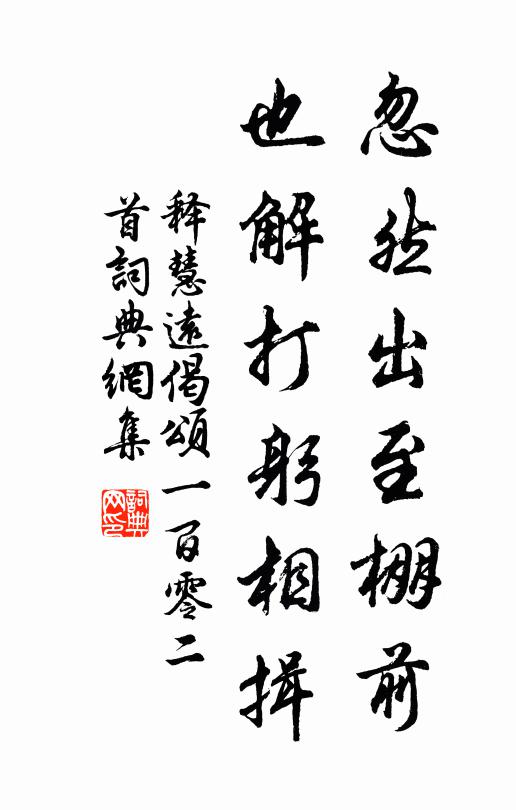 忽然出至棚前
也解打躬相揖
释慧遠偈頌一百零二
首詞典網集
詞典网印